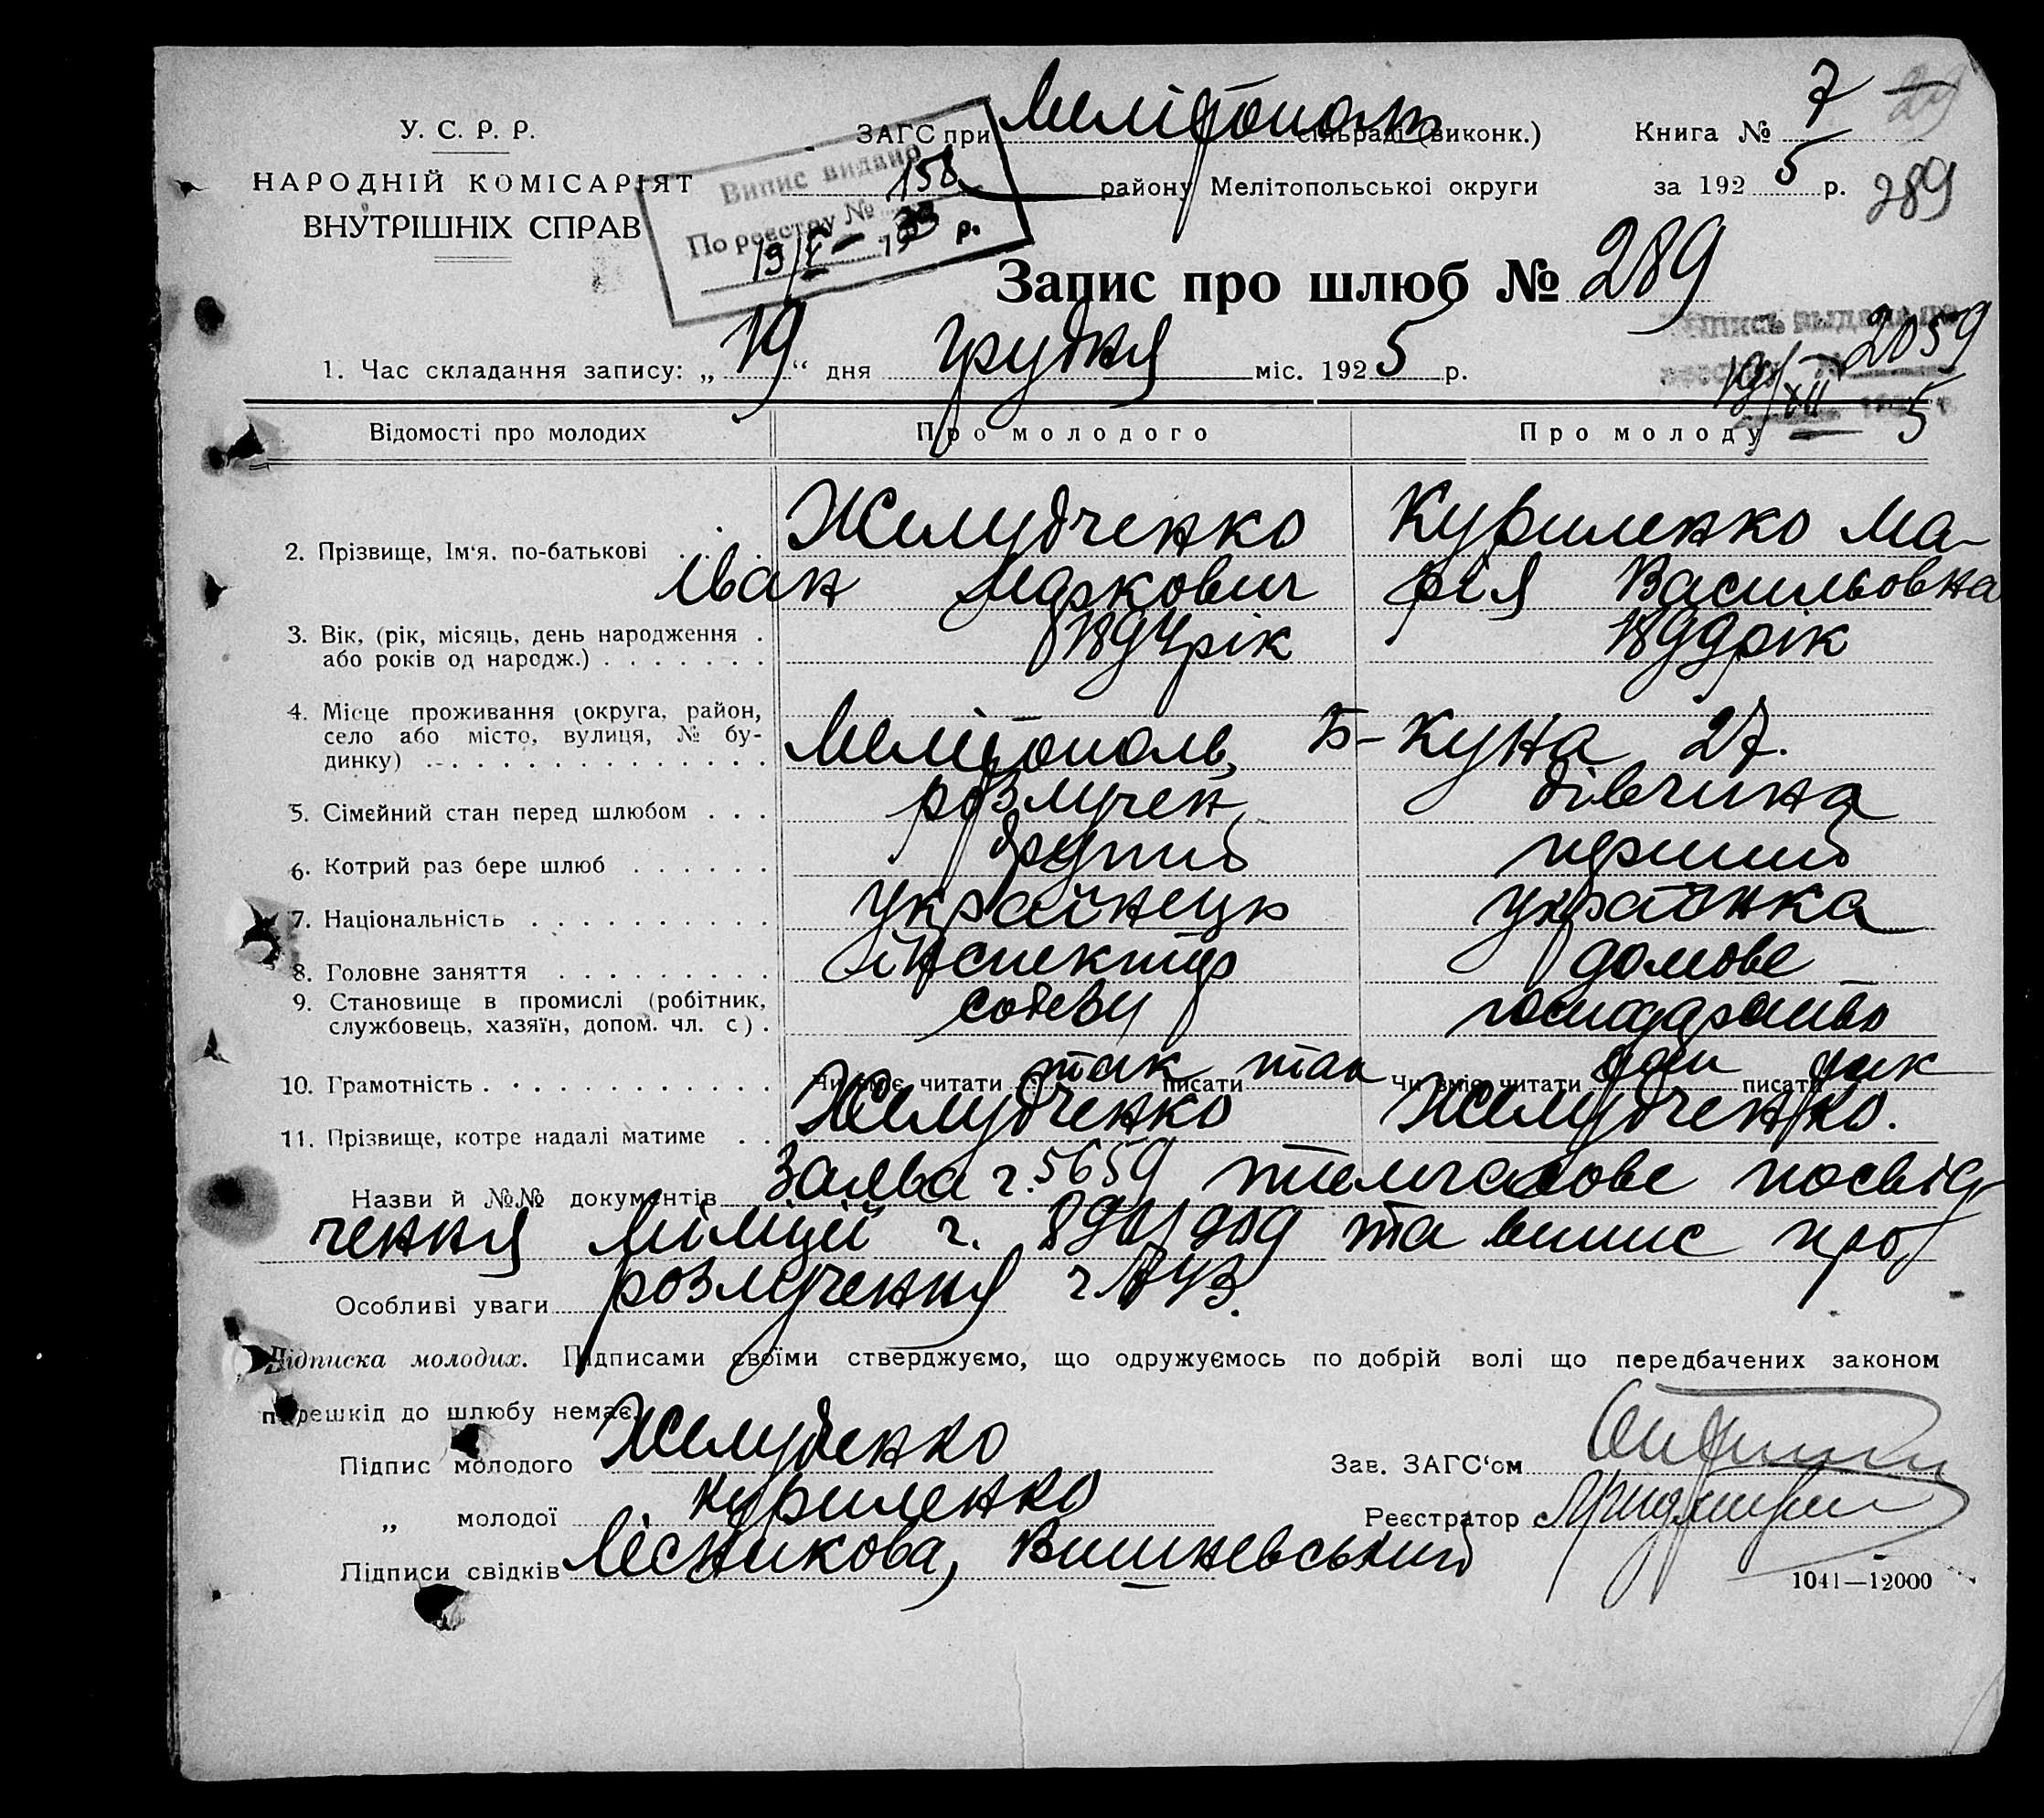 У. С. Р. Р.
НАРОДНІЙ КОМІСАРІЯТ
ВНУТРІШНІХ СПРАВ
Випис видано
По реєстру № 158
19/V – 1933 р.
ЗАГС при Мелітополь сільраді (виконк.)
району Мелітопольської округи
Книга № 7
за 1925 р.
29
289
Запис про шлюб № 289
2059
19/XII 5
1. Час складання запису: „19“ дня грудня міс. 1925 р.
Відомості про молодих Про молодого Про молоду
2. Прізвище, Ім‘я, по-батькові Желудченко Куриленко Ма-
Іван Маркович рія Васильовна
3. Вік, (рік, місяць, день народження . 1894 рік 1899 рік
або років од народж.)
4. Місце проживання (округа, район,
село або місто, вулиця, № бу-
динку) Мелітополь, Б-Куна 27.
5. Сімейний стан перед шлюбом розлучен дівчина
6. Котрий раз бере шлюб другий перший
7. Національність українець українка
8. Головне заняття інспектор домове
9. Становище в промислі (робітник,
службовець, хазяїн, допом. чл. с). господарство
10. Грамотність Чи вміє читати так писати так Чи вміє читати так писати так
11. Прізвище, котре надалі матиме Желудченко Желудченко.
Назви й №№ документів Заява ч. 5659 тимчасове посвід
чення міліції ч. та випис про
Особливі уваги розлучення ч
Підписка молодих. Підписами своїми стверджуємо, що одружуємось по добрій волі що передбачених законом
перешкід до шлюбу немає.
Підпис молодого Желудченко
Зав. ЗАГС‘ом
„ молодої Куриленко
Реєстратор
Підписи свідків Леснікова, Вишневський
1041—12000